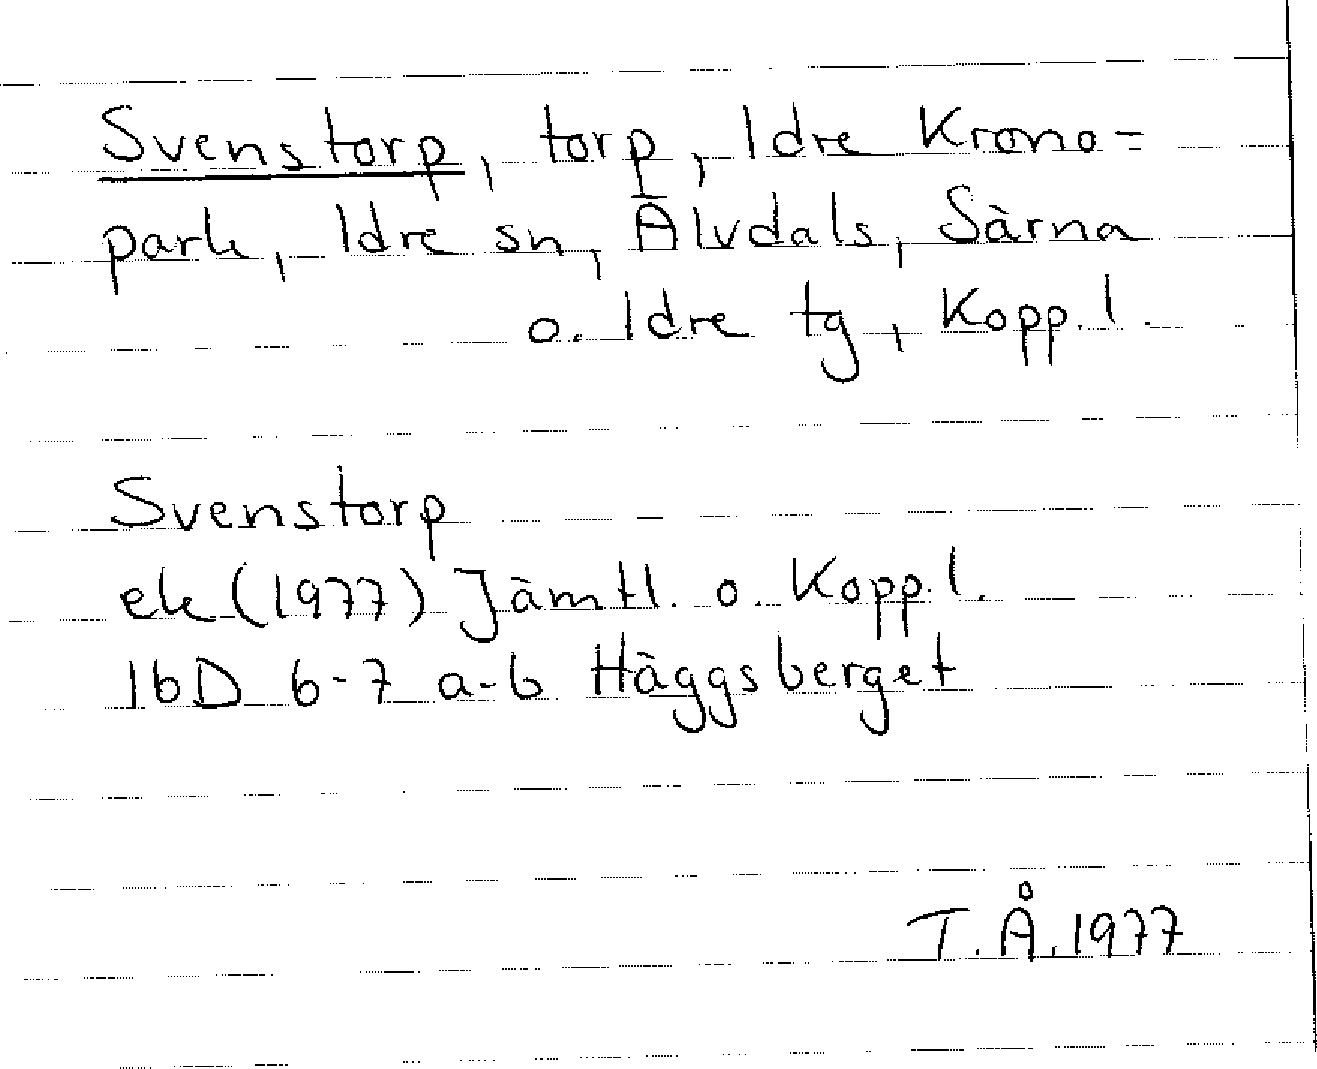 Svenstorp, torp, Idre Krono=
park, Idre sn, Älvdals, Särna
o. Idre tg, Kopp. l.
Svenstorp
ek (1977) Jämtl. o. Kopp. l.
16D 6-7 a-b Häggsberget
T.Å. 1977